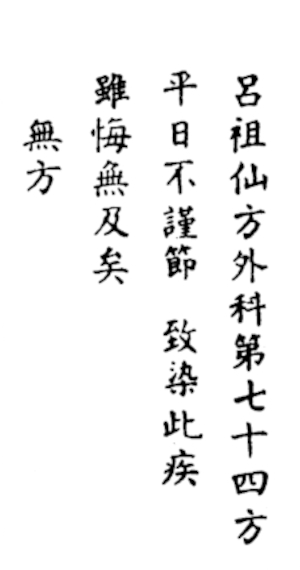 呂祖仙方外科第七十四方
平日不謹節　致染此疾
雖悔無及矣
無方